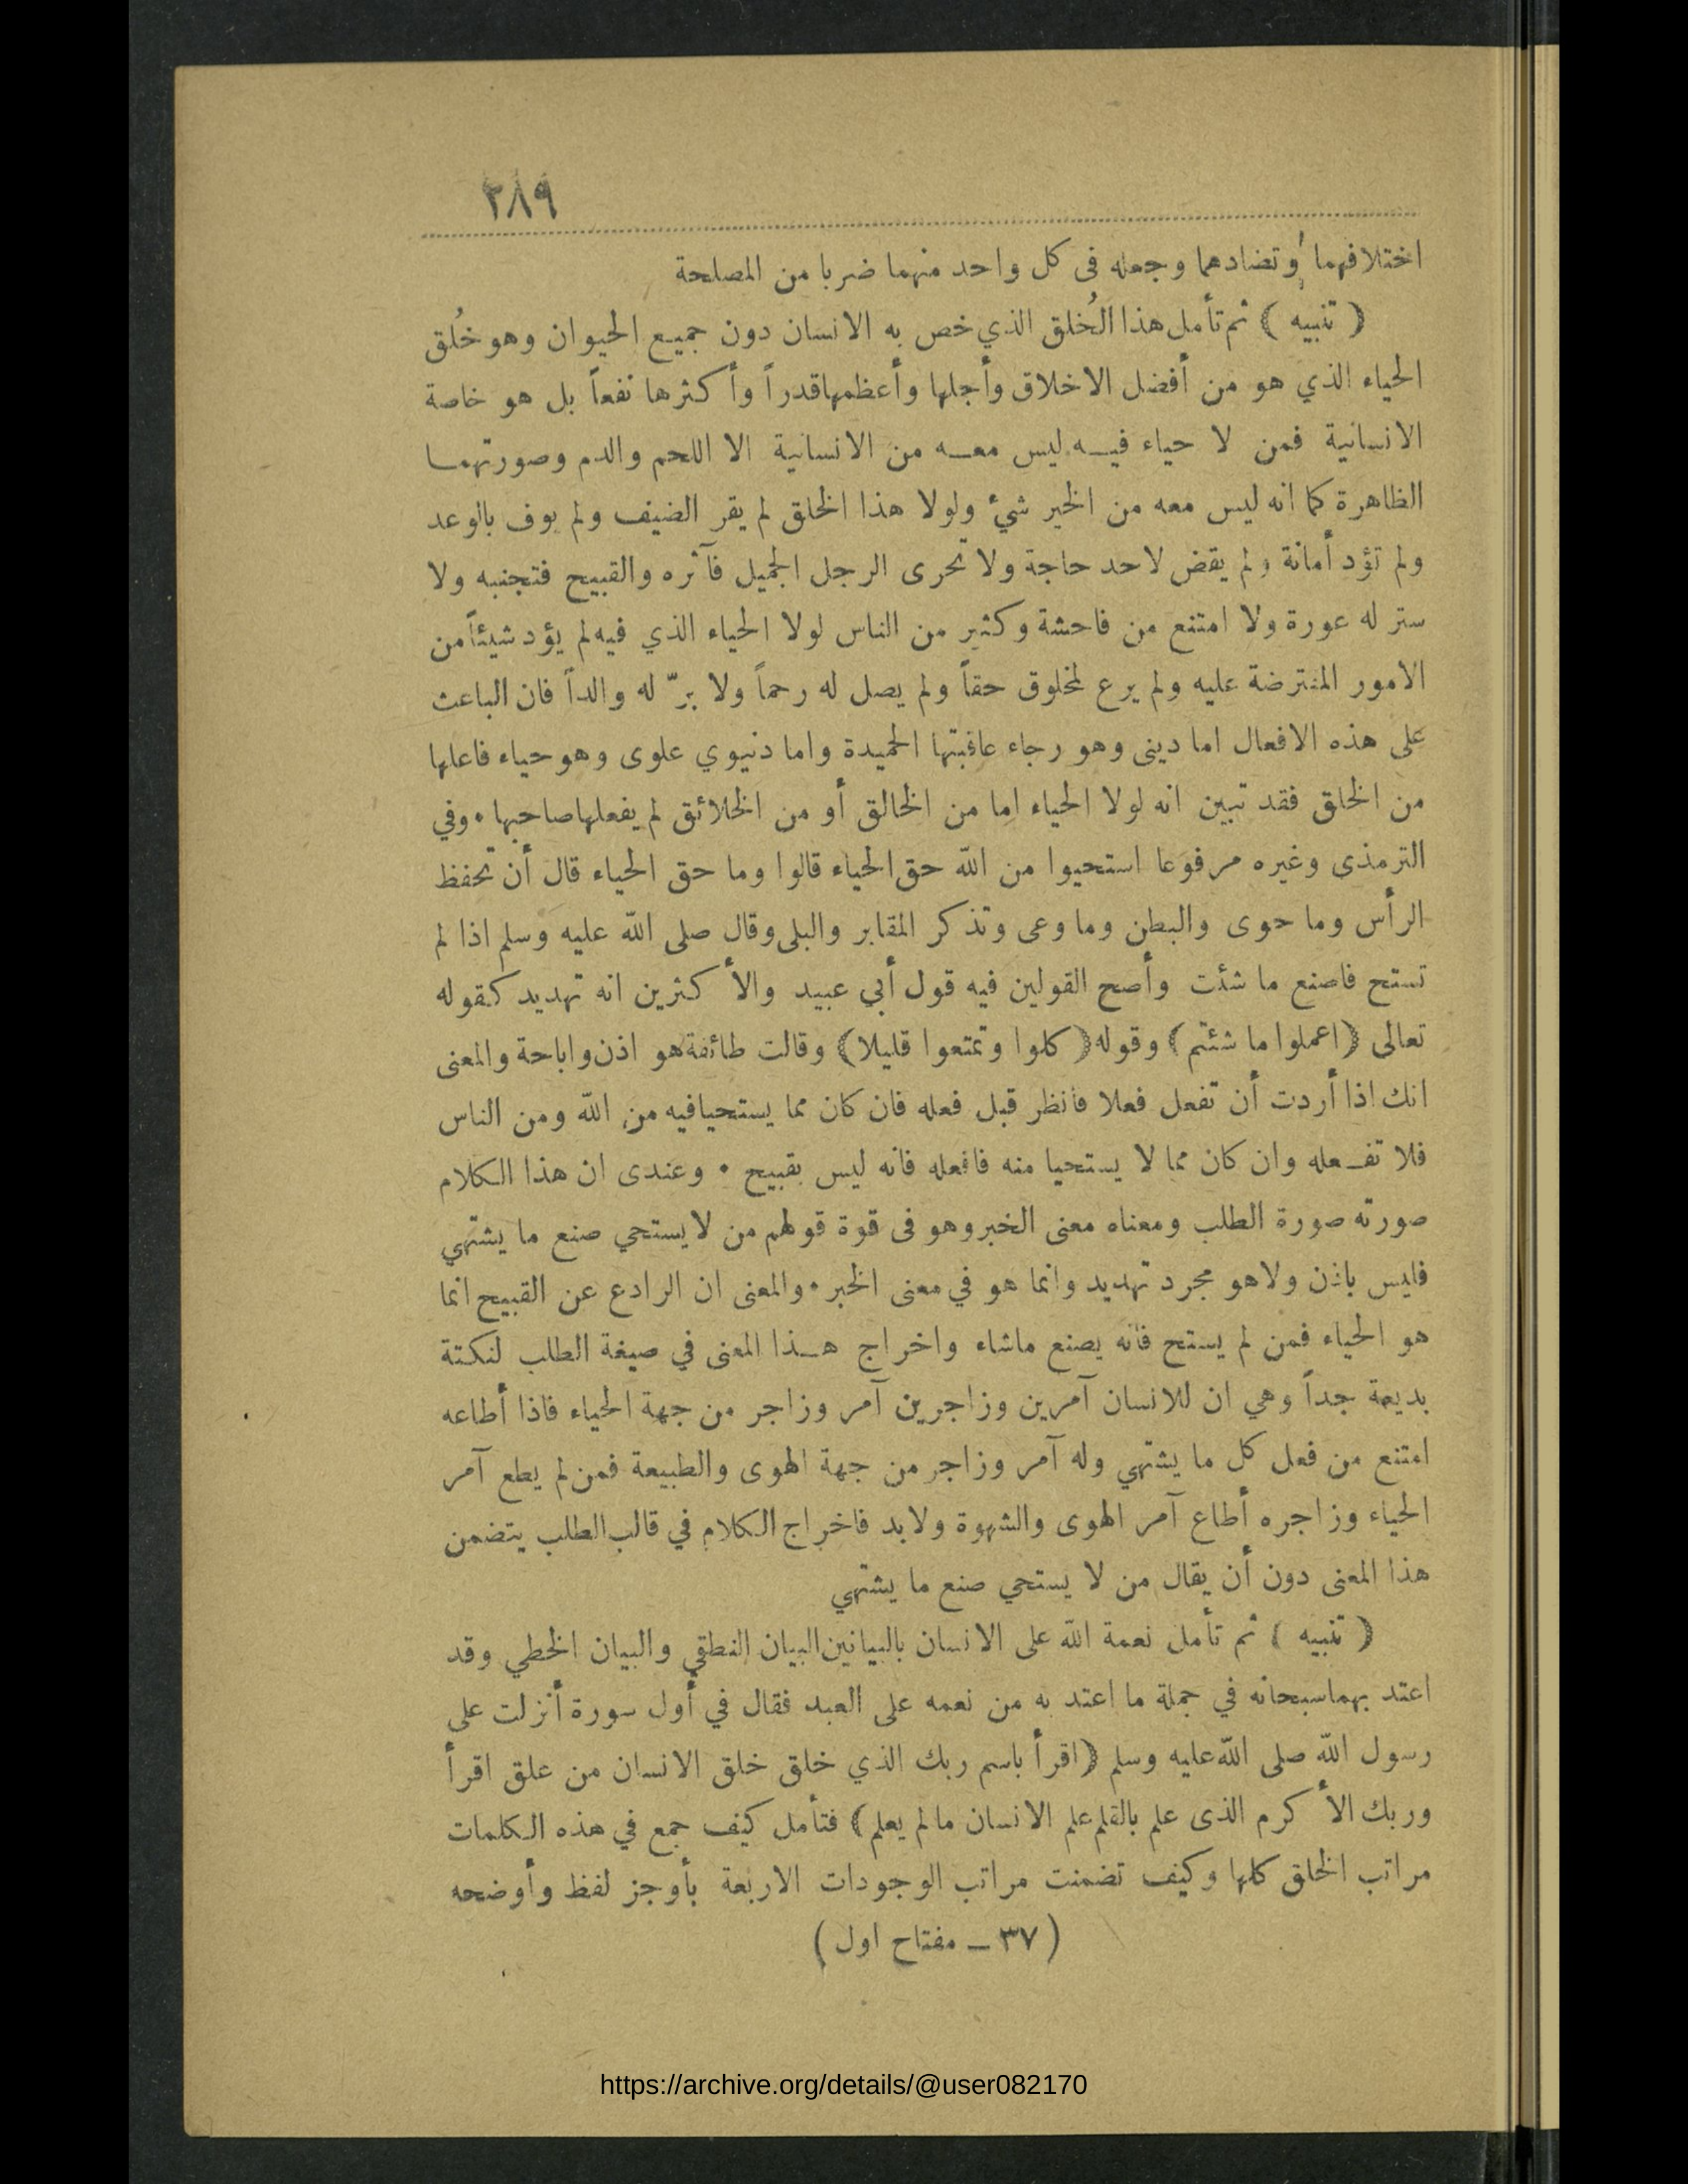 ٢٨٩
اختلافهما وتضادهما وجعله فى كل واحد منهما ضربا من المصلحة
﴿ تنبيه ﴾ ثم تأمل هذا الخُلق الذي خص به الانسان دون جميع الحيوان وهو خُلق
الحياء الذي هو من أفضل الاخلاق وأجلها وأعظمها قدراً وأكثرها نفعاً بل هو خاصة
الانسانية فمن لا حياء فيـه ليس معـه من الانسانية الا اللحم والدم وصورتهمـا
الظاهرة كما انه ليس معه من الخير شيء ولولا هذا الخلق لم يقر الضيف ولم يوف بالوعد
ولم تؤد أمانة ولم يقض لاحد حاجة ولا تحرى الرجل الجميل فآثره والقبيح فتجنبه ولا
ستر له عورة ولا امتنع من فاحشة وكثير من الناس لولا الحياء الذي فيه لم يؤد شيئاً من
الامور المفترضة عليه ولم يرع لمخلوق حقاً ولم يصل له رحماً ولا برّ له والداً فان الباعث
على هذه الافعال اما دينى وهو رجاء عاقبتها الحميدة واما دنيوي علوى وهو حياء فاعلها
من الخلق فقد تبين انه لولا الحياء اما من الخالق أو من الخلائق لم يفعلها صاحبها • وفي
الترمذى وغيره مرفوعا استحيوا من الله حق الحياء قالوا وما حق الحياء قال أن تحفظ
الرأس وما حوى والبطن وما وعى وتذكر المقابر والبلى وقال صلى الله عليه وسلم اذا لم
تستح فاصنع ما شئت وأصح القولين فيه قول أبي عبيد والأكثرين انه تهديد كقوله
تعالى ﴿اعملوا ما شئتم﴾ وقوله ﴿كلوا وتمتعوا قليلا﴾ وقالت طائفة هو اذن واباحة والمعنى
انك اذا أردت أن تفعل فعلا فانظر قبل فعله فان كان مما يستحيا فيه من الله ومن الناس
فلا تفـعله وان كان مما لا يستحيا منه فافعله فانه ليس بقبيح • وعندى ان هذا الكلام
صورته صورة الطلب ومعناه معنى الخبر وهو فى قوة قولهم من لا يستحي صنع ما يشتهي
فليس باذن ولا هو مجرد تهديد وانما هو في معنى الخبر • والمعنى ان الرادع عن القبيح انما
هو الحياء فمن لم يستح فانه يصنع ماشاء واخراج هـذا المعنى في صيغة الطلب لنكتة
بديعة جداً وهي ان للانسان آمرين وزاجرين آمر وزاجر من جهة الحياء فاذا أطاعه
امتنع من فعل كل ما يشتهي وله آمر وزاجر من جهة الهوى والطبيعة فمن لم يطع آمر
الحياء وزاجره أطاع آمر الهوى والشهوة ولابد فاخراج الكلام في قالب الطلب يتضمن
هذا المعنى دون أن يقال من لا يستحي صنع ما يشتهي
﴿ تنبيه ﴾ ثم تأمل نعمة الله على الانسان بالبيانين البيان النطقي والبيان الخطي وقد
اعتد بهما سبحانه في جملة ما اعتد به من نعمه على العبد فقال في أول سورة أنزلت على
رسول الله صلى الله عليه وسلم ﴿اقرأ باسم ربك الذي خلق خلق الانسان من علق اقرأ
وربك الأكرم الذى علم بالقلم علم الانسان مالم يعلم﴾ فتأمل كيف جمع في هذه الكلمات
مراتب الخلق كلها وكيف تضمنت مراتب الوجودات الاربعة بأوجز لفظ وأوضحه
( ٣٧ ــ مفتاح اول )
https://archive.org/details/@user082170